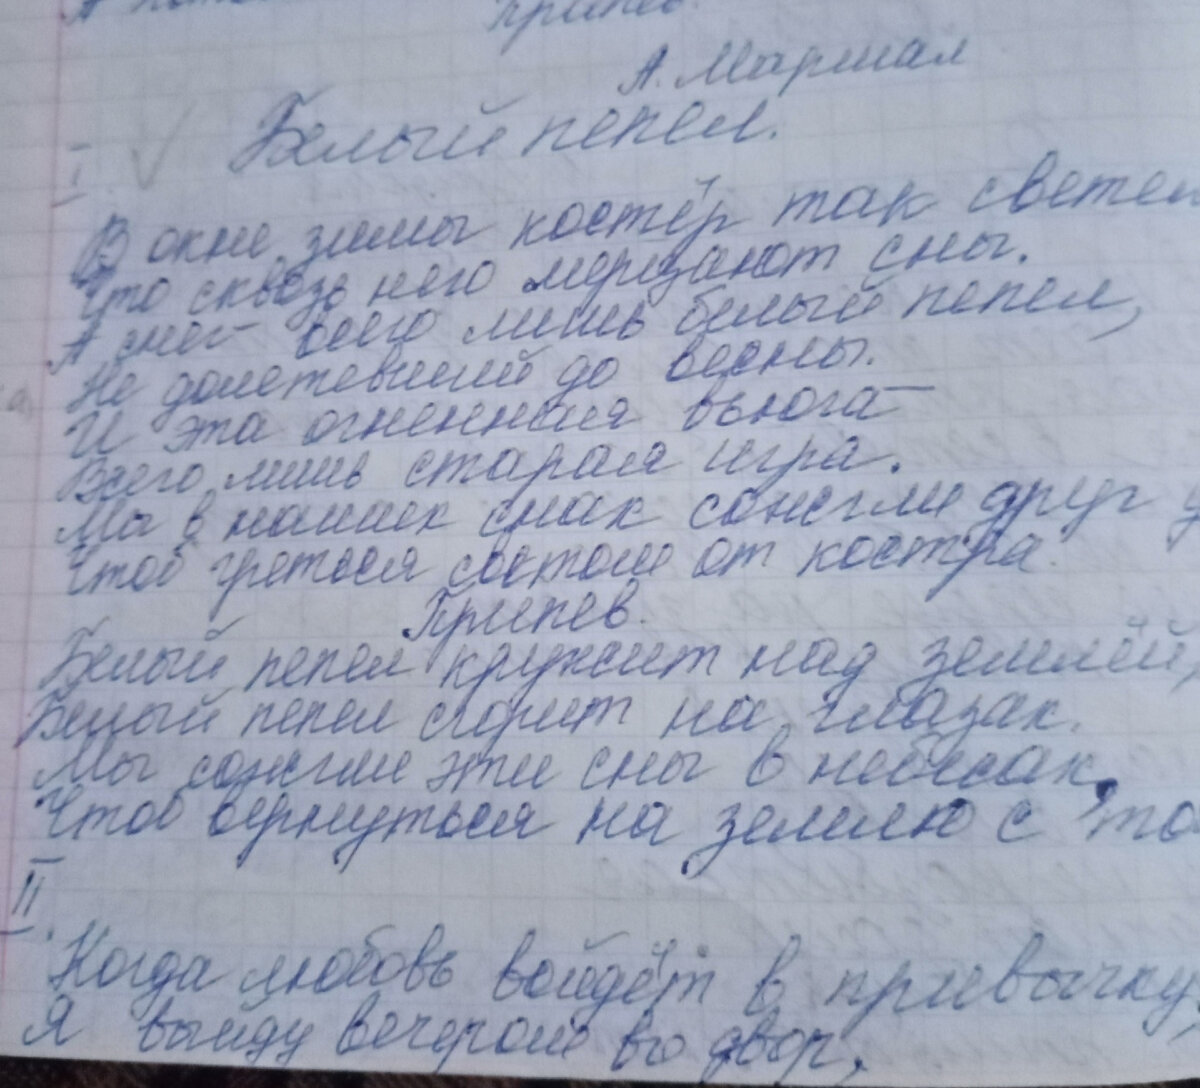 Припев.
А. Маршал
Белый пепел.
I
В окне зимы костёр так светел
Что сквозь него мерцают сны.
А снег всего лишь белый пепел,
Не долетевший до весны.
И эта огненная вьюга —
Всего лишь старая игра.
Мы в наших снах сожгли друг д
Чтоб греться светом от костра.
Припев.
Белый пепел кружит над землёй,
Белый пепел сгорит на глазах.
Мы сожгли эти сны в небесах,
Чтоб вернуться на землю с то
II
Когда любовь войдёт в привычку,
Я выйду вечером во двор,